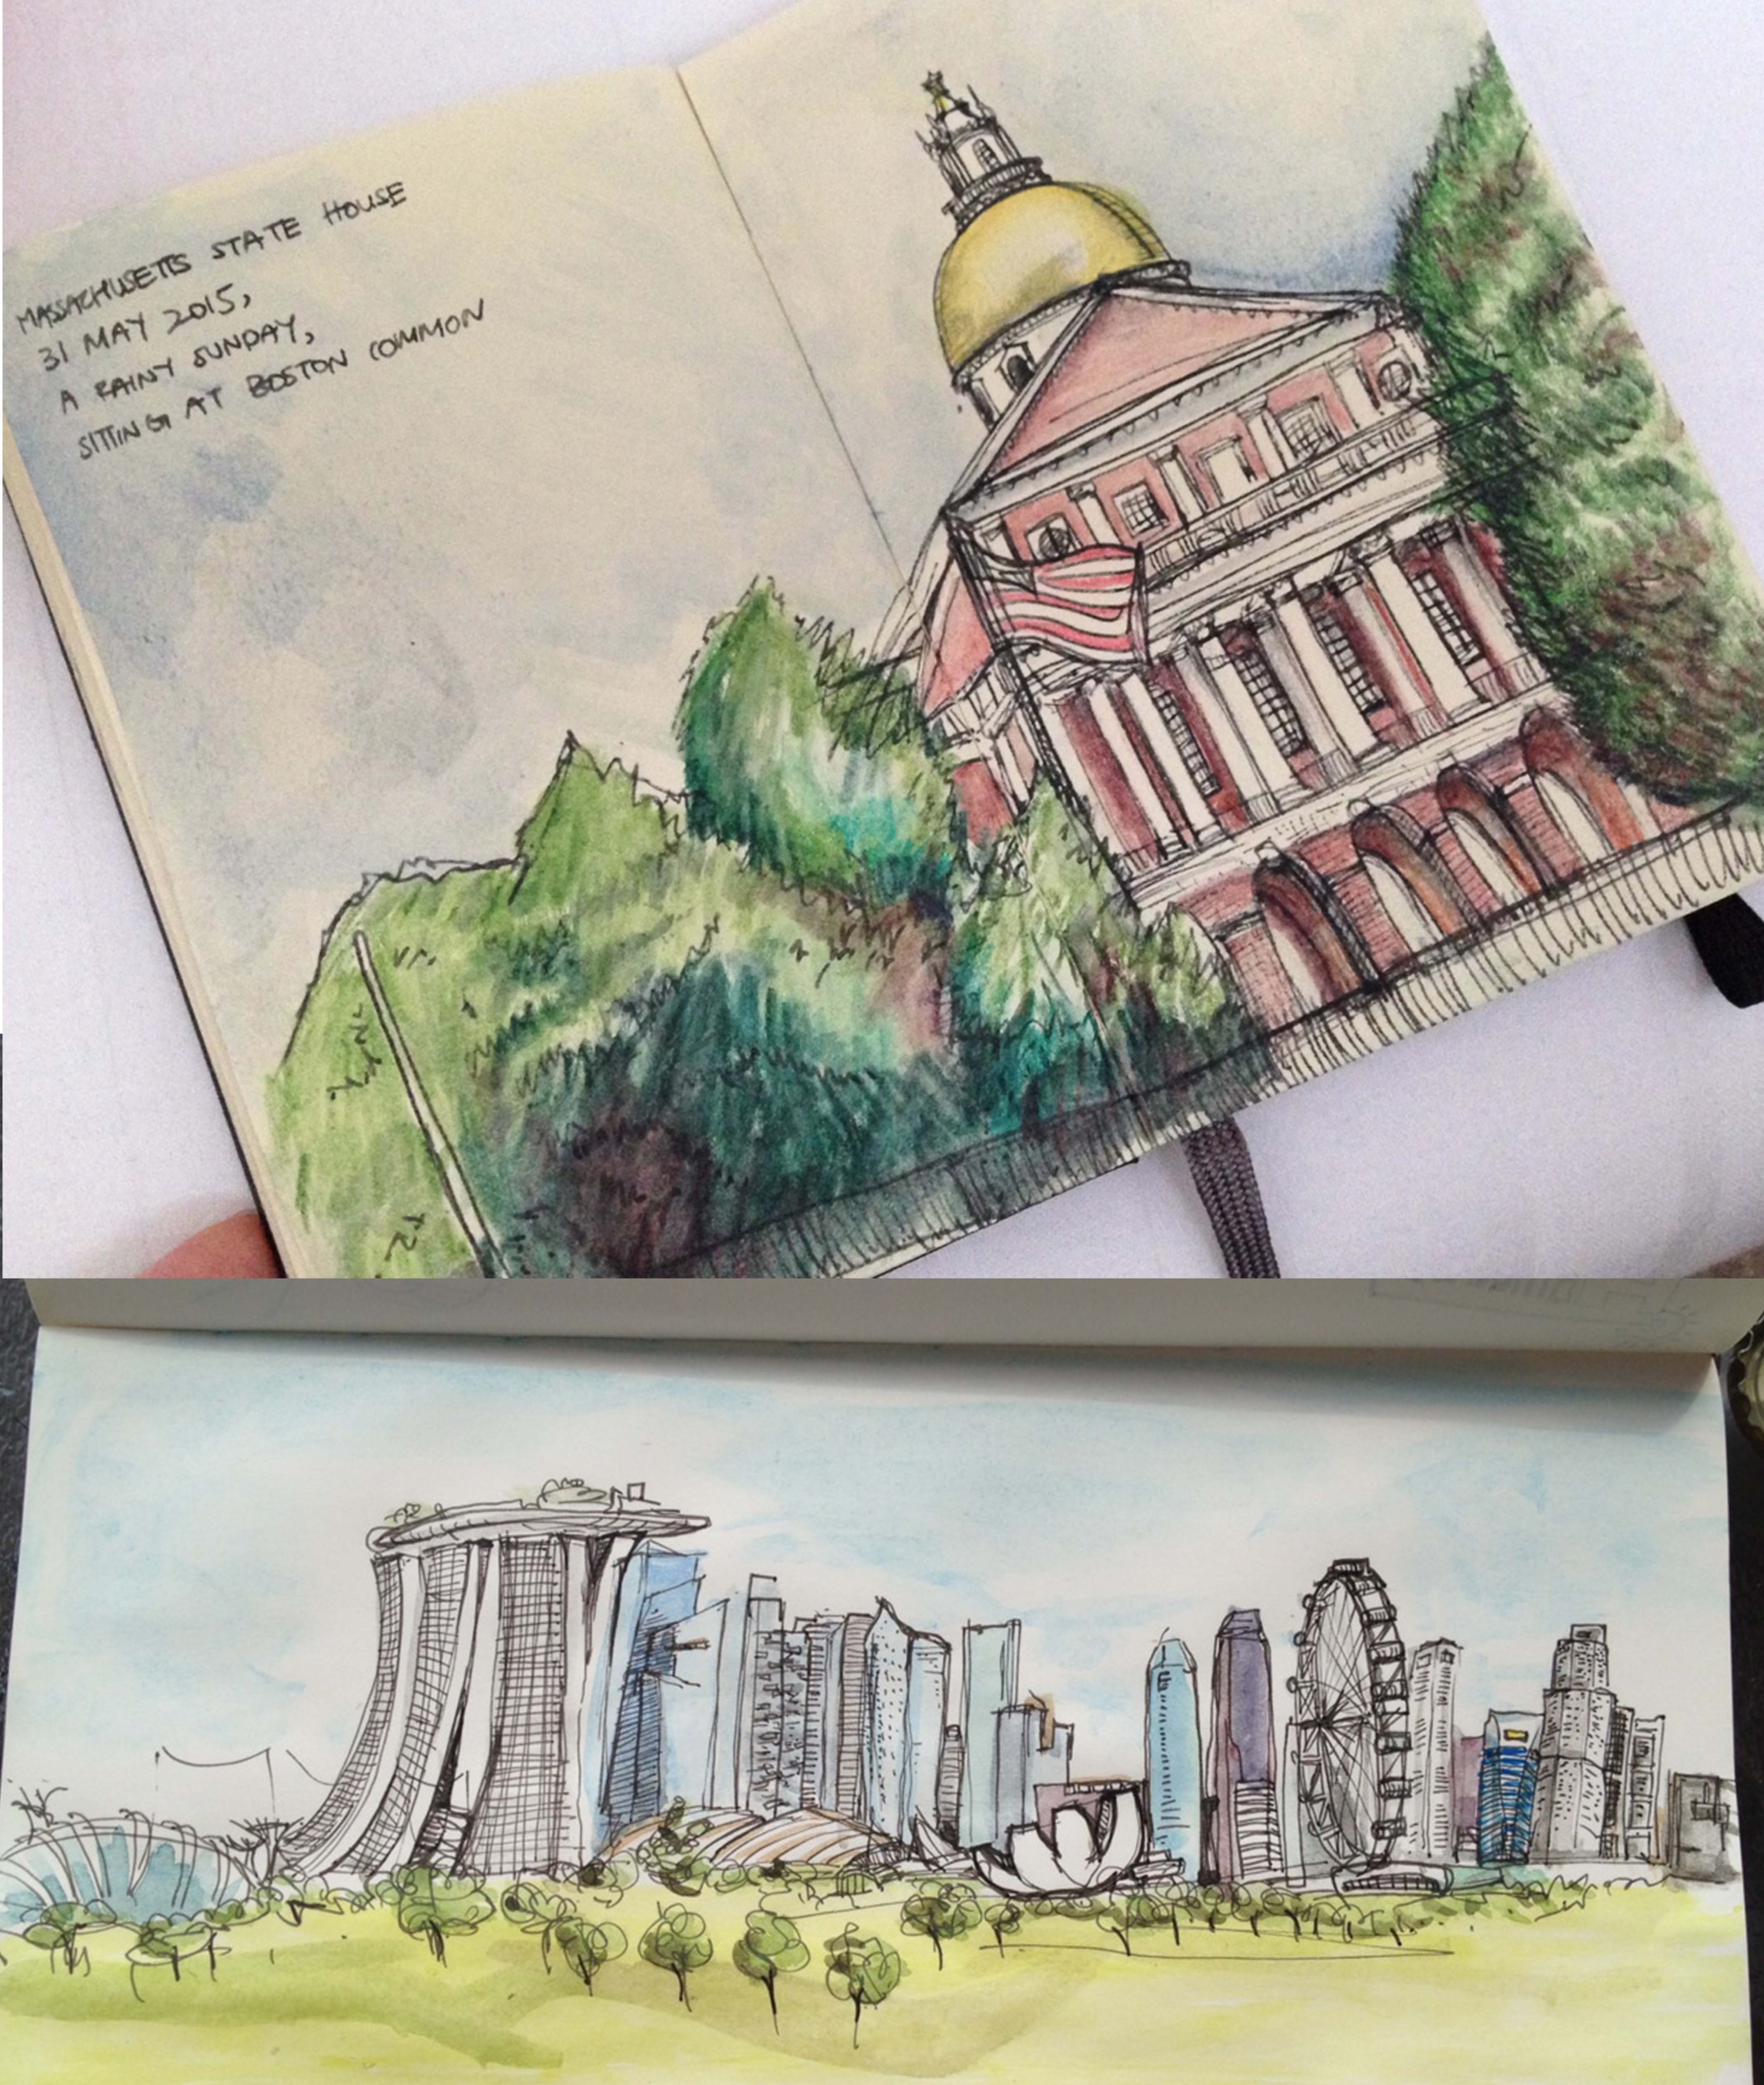 MASSACHUSETTS STATE HOUSE
31 MAY 2015,
A RAINY SUNDAY,
SITTING AT BOSTON COMMON